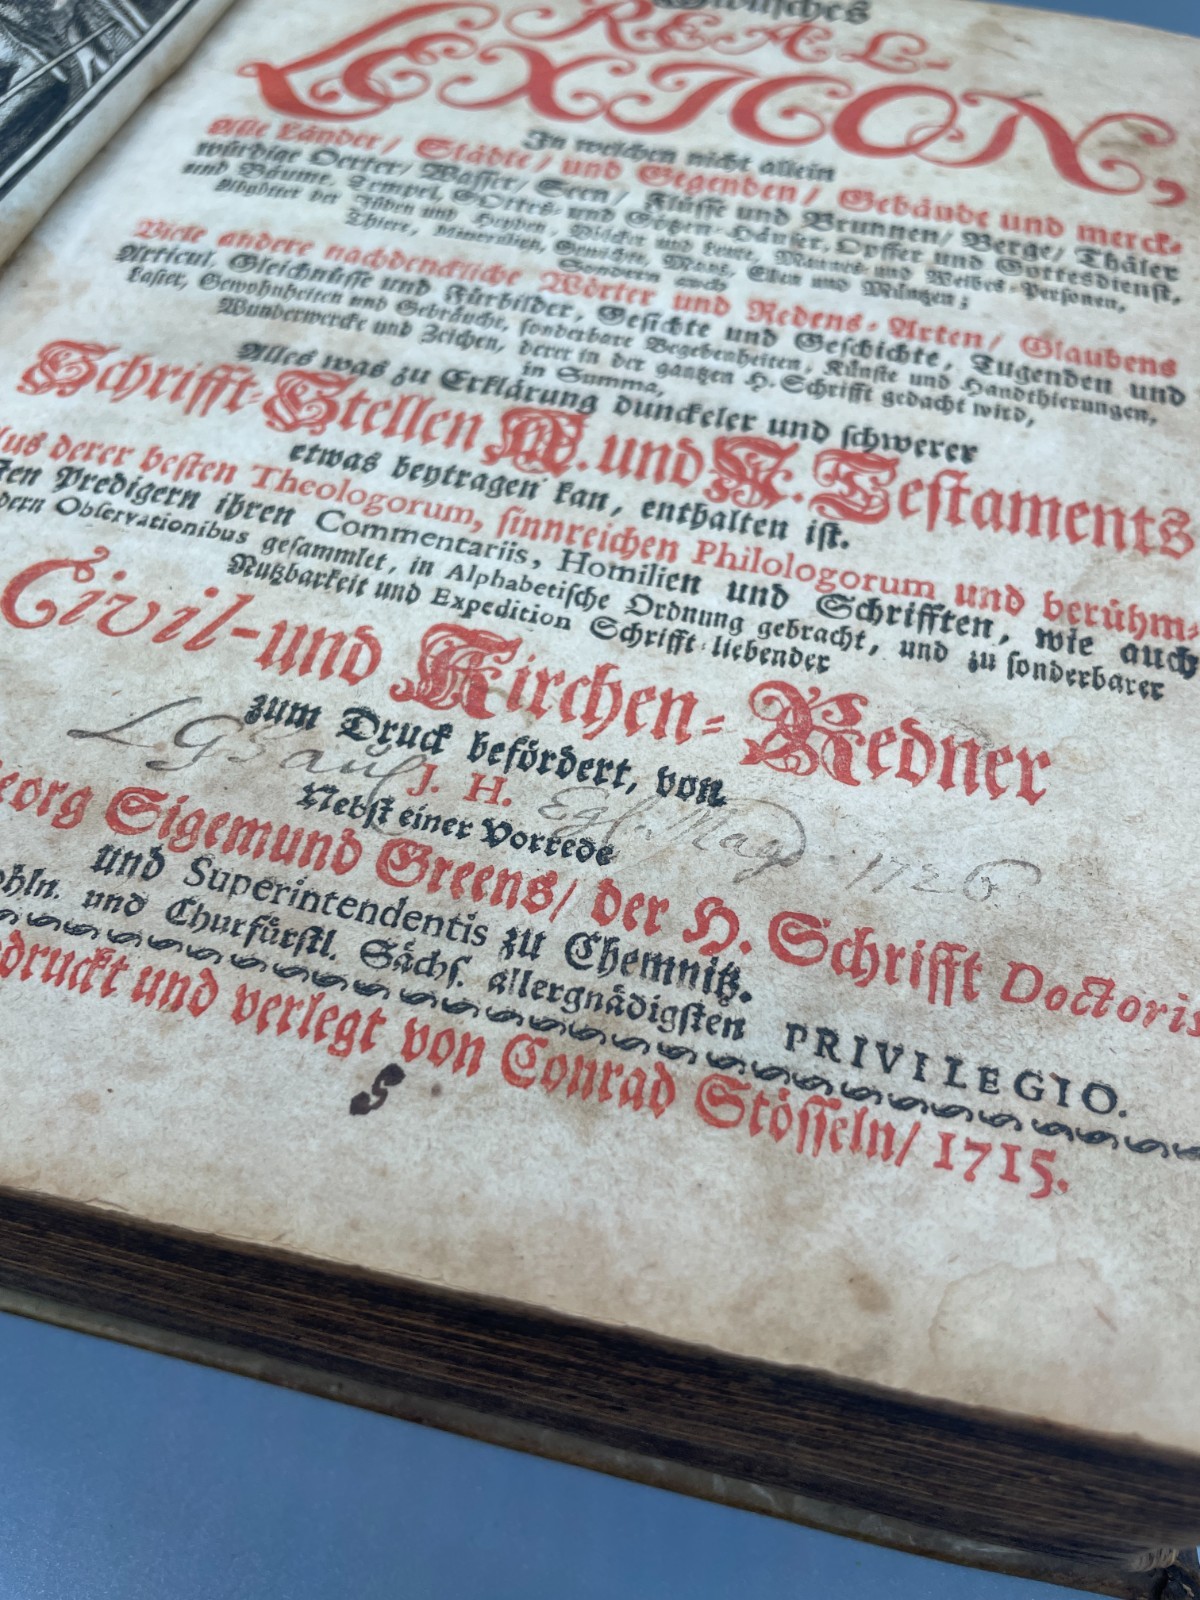 REAL-
LEXICON,
In welchen nicht allein
Alle Länder/ Städte/ und Gegenden/ Gebäude und merck-
würdige Oerter/ Wasser/ Seen/ Flüsse und Brunnen/ Berge/ Thäler
und Bäume, Tempel, GOttes- und Götzen-Häuser, Opffer und Gottesdienst,
Abgötter der Jüden und Heyden, Völcker und Leute, Mannes- und Weibes-Personen,
Thiere, Mineralien, Gewichte, Maas, Ellen und Müntzen;
Sondern auch
Viele andere nachdenckliche Wörter und Redens-Arten/ Glaubens
Articul, Gleichnüsse und Fürbilder, Gesichte und Geschichte, Tugenden und
Laster, Gewohnheiten und Gebräuche, sonderbare Begebenheiten, Künste und Handthierungen,
Wunderwercke und Zeichen, derer in der gantzen H. Schrifft gedacht wird,
in Summa,
Alles was zu Erklärung dunckeler und schwerer
Schrifft-Stellen A. und N. Testaments
etwas beytragen kan, enthalten ist.
us derer besten Theologorum, sinnreichen Philologorum und berühm-
ten Predigern ihren Commentariis, Homilien und Schrifften, wie auch
dern Observationibus gesammlet, in Alphabetische Ordnung gebracht, und zu sonderbarer
Nutzbarkeit und Expedition Schrifft-liebender
Civil- und Kirchen-Redner
zum Druck befördert, von
J. H.
May 1726
Nebst einer Vorrede
eorg Sigemund Greens/ der H. Schrifft Doctoris
und Superintendentis zu Chemnitz.
ohln. und Churfürstl. Sächs. allergnädigsten PRIVILEGIO.
druckt und verlegt von Conrad Stösseln/ 1715.
S